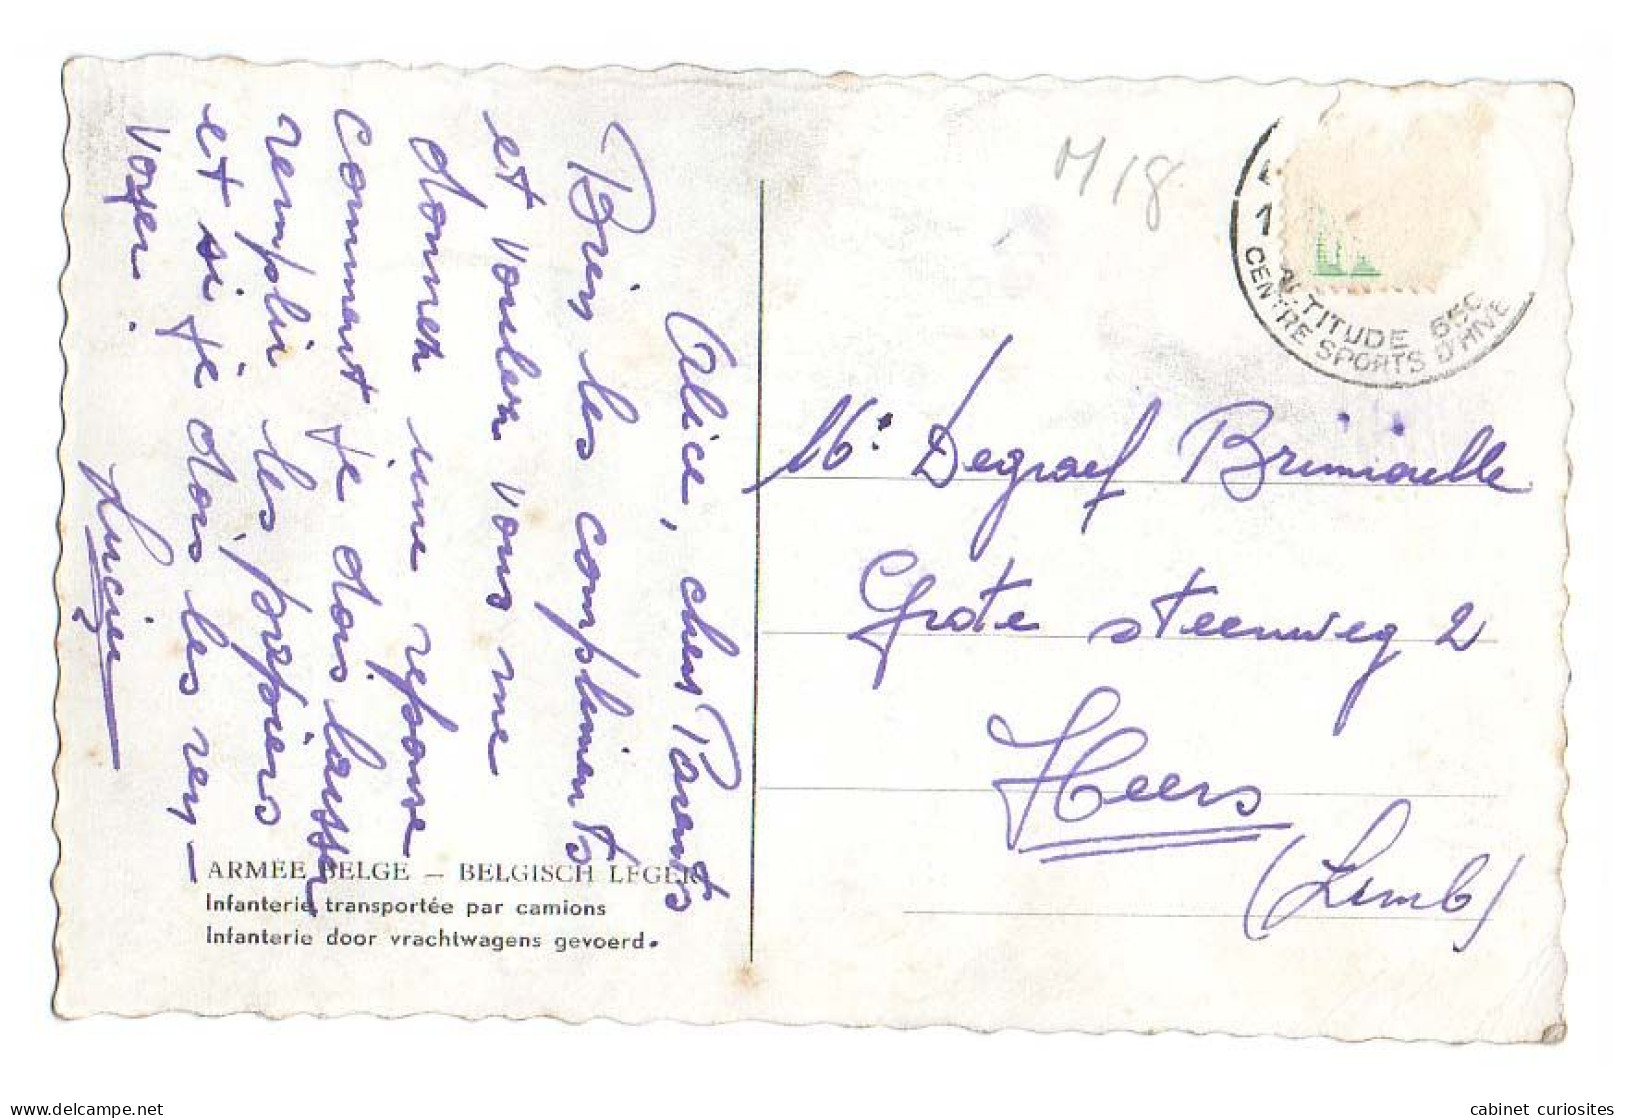 Alice, chers Parents
Bien les compliments
et voulez vous me
donner une reponse
comment je dois laisser
remplir les papiers
et si je dois les ren-
voyer.
Lucien
ARMÉE BELGE — BELGISCH LEGER
Infanterie transportée par camions
Infanterie door vrachtwagens gevoerd.
M18
1
ALTITUDE 650
CENTRE SPORTS D'HIVE
Degraef Brimioulle
Grote steenweg 2
Heers
(Limb)
cabinet curiosites